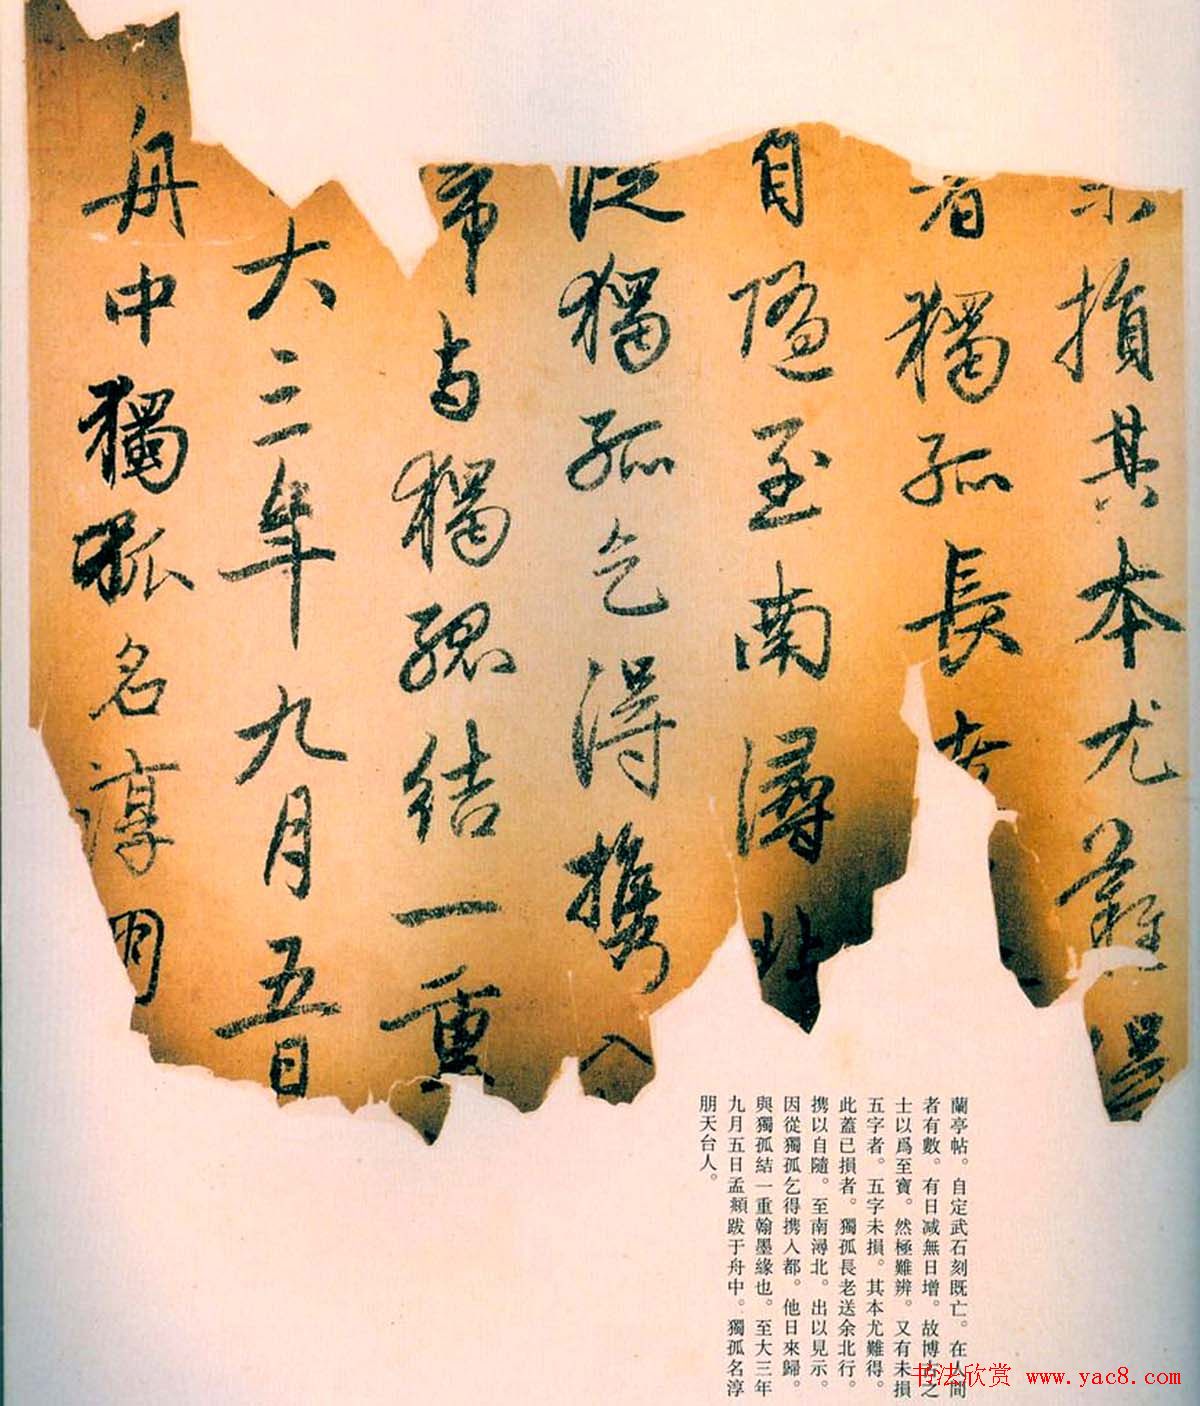 未損其本尤難得
者獨孤長老
自隨至南潯北
從獨孤乞得携入
帝与獨孤結一重
大三年九月五日
舟中獨孤名淳朋
蘭亭帖。自定武石刻既亡。在人間
者有數。有日减無日增。故博古之
士以爲至寶。然極難辨。又有未損
五字者。五字未損。其本尤難得。
此蓋已損者。獨孤長老送余北行。
携以自隨。至南潯北。出以見示。
因從獨孤乞得携入都。他日來歸。
與獨孤結一重翰墨緣也。至大三年
九月五日孟頫跋于舟中。獨孤名淳
朋天台人。
书法欣赏 www.yac8.com